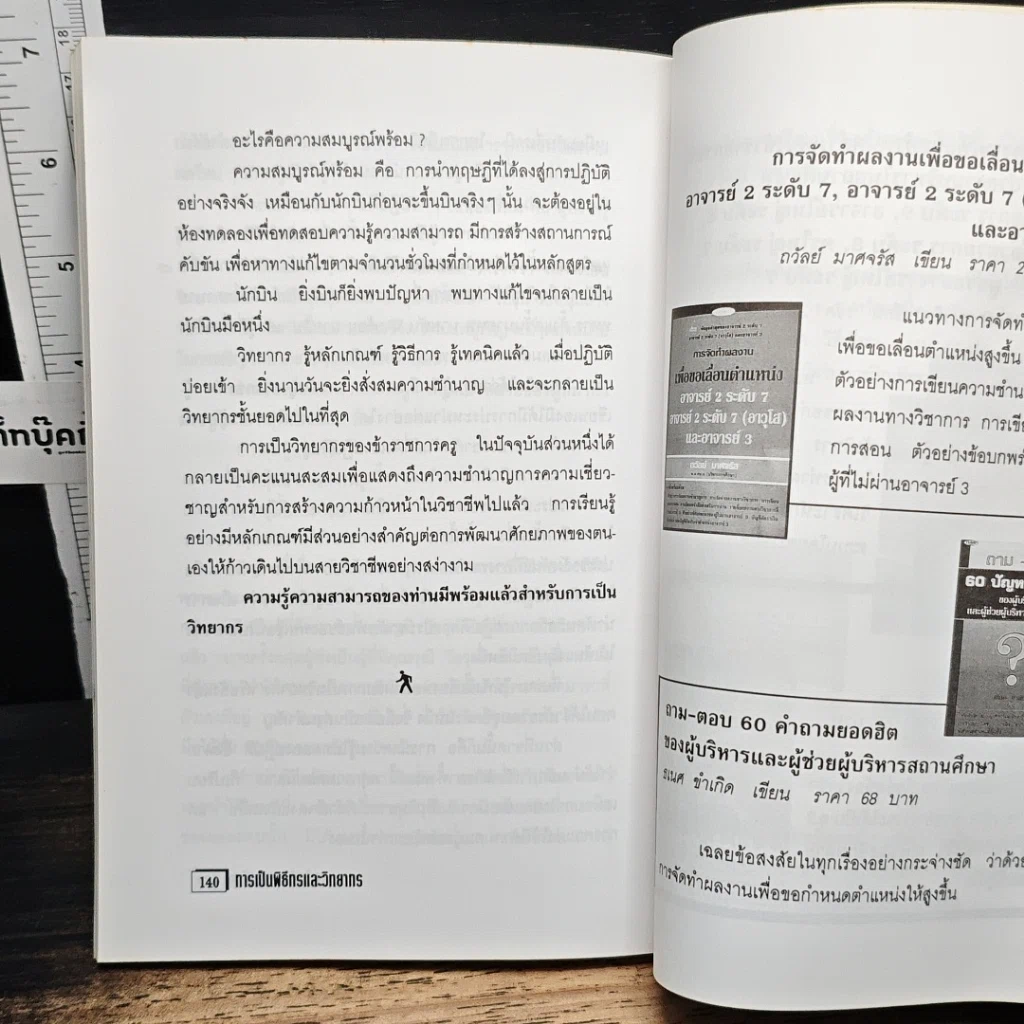 อะไรคือความสมบูรณ์พร้อม ?
ความสมบูรณ์พร้อม คือ การนำทฤษฎีที่ได้ลงสู่การปฏิบัติ
อย่างจริงจัง เหมือนกับนักบินก่อนจะขึ้นบินจริงๆ นั้น จะต้องอยู่ใน
ห้องทดลองเพื่อทดสอบความรู้ความสามารถ มีการสร้างสถานการณ์
คับขัน เพื่อหาทางแก้ไขตามจำนวนชั่วโมงที่กำหนดไว้ในหลักสูตร
นักบิน ยิ่งบินก็ยิ่งพบปัญหา พบทางแก้ไขจนกลายเป็น
นักบินมือหนึ่ง
วิทยากร รู้หลักเกณฑ์ รู้วิธีการ รู้เทคนิคแล้ว เมื่อปฏิบัติ
บ่อยเข้า ยิ่งนานวันจะยิ่งสั่งสมความชำนาญ และจะกลายเป็น
วิทยากรชั้นยอดไปในที่สุด
การเป็นวิทยากรของข้าราชการครู ในปัจจุบันส่วนหนึ่งได้
กลายเป็นคะแนนสะสมเพื่อแสดงถึงความชำนาญการความเชี่ยว-
ชาญสำหรับการสร้างความก้าวหน้าในวิชาชีพไปแล้ว การเรียนรู้
อย่างมีหลักเกณฑ์มีส่วนอย่างสำคัญต่อการพัฒนาศักยภาพของตน-
เองให้ก้าวเดินไปบนสายวิชาชีพอย่างสง่างาม
ความรู้ความสามารถของท่านมีพร้อมแล้วสำหรับการเป็น
วิทยากร
140 การเป็นพิธีกรและวิทยากร
การจัดทำผลงานเพื่อขอเลื่อน
อาจารย์ 2 ระดับ 7, อาจารย์ 2 ระดับ 7 (
และอา
ถวัลย์ มาศจรัส เขียน ราคา 2
แนวทางการจัดทำ
เพื่อขอเลื่อนตำแหน่งสูงขึ้น
ตัวอย่างการเขียนความชำน
ผลงานทางวิชาการ การเขีย
การสอน ตัวอย่างข้อบกพร่
ผู้ที่ไม่ผ่านอาจารย์ 3
การจัดทำผลงาน
เพื่อขอเลื่อนตำแหน่ง
อาจารย์ 2 ระดับ 7
อาจารย์ 2 ระดับ 7 (อาวุโส)
และอาจารย์ 3
ถวัลย์ มาศจรัส
ถาม -
60 ปัญห
ของผู้บริ
และผู้ช่วยผู้บริหา
?
ถาม-ตอบ 60 คำถามยอดฮิต
ของผู้บริหารและผู้ช่วยผู้บริหารสถานศึกษา
ธเนศ ขำเกิด เขียน ราคา 68 บาท
เฉลยข้อสงสัยในทุกเรื่องอย่างกระจ่างชัด ว่าด้วย
การจัดทำผลงานเพื่อขอกำหนดตำแหน่งให้สูงขึ้น
7
6
5
18
17